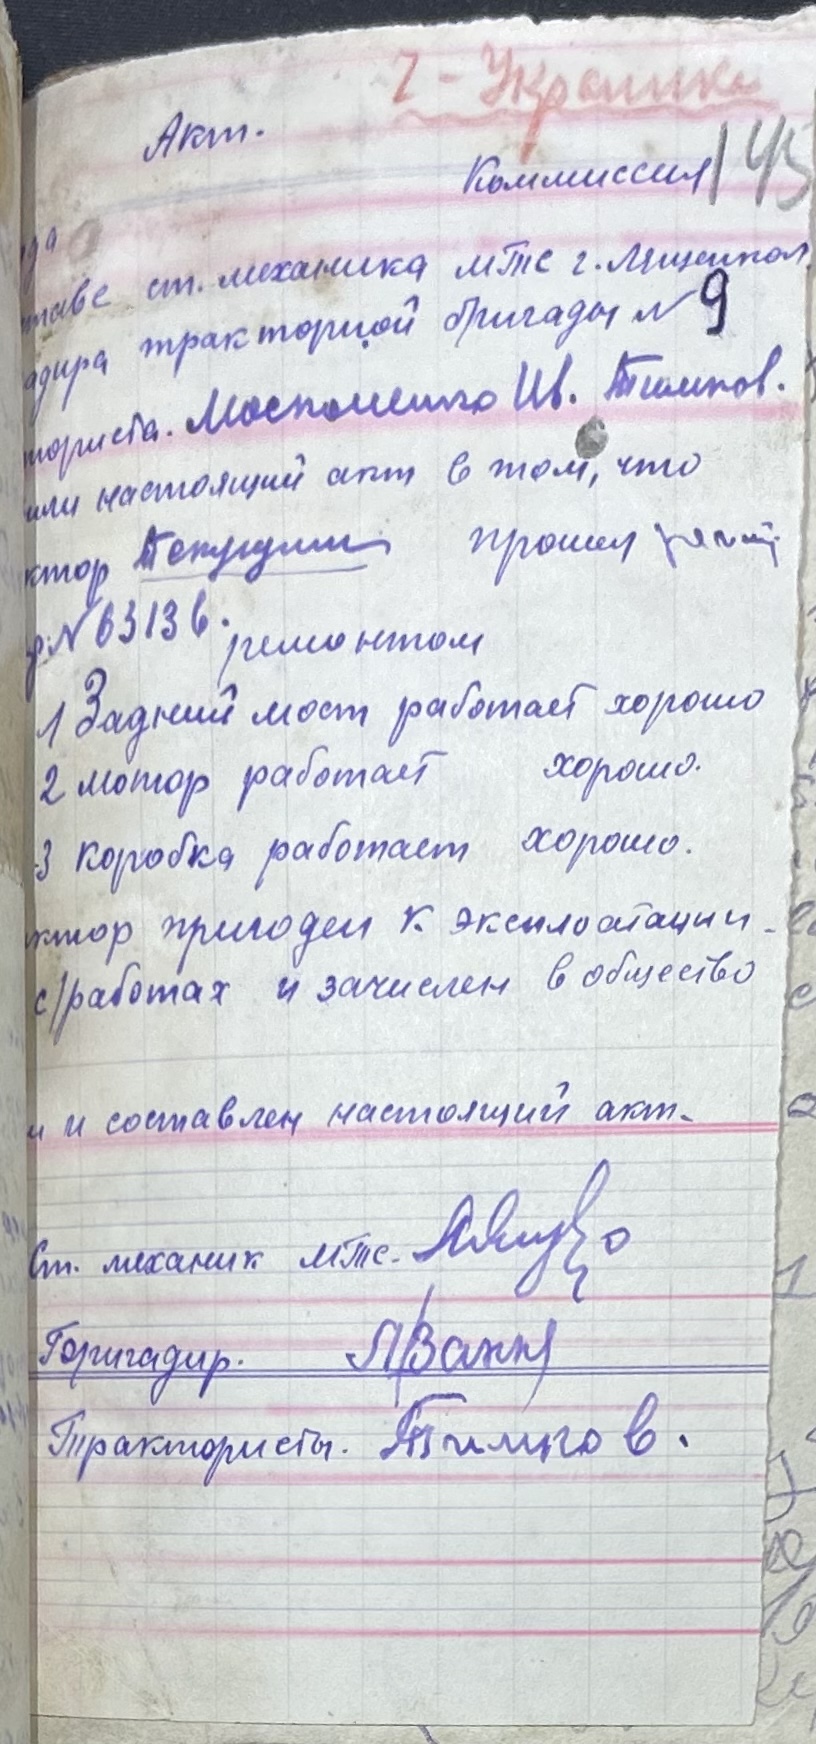 7 - Украинка
Акт.
Коммиссия 145
ида
таве ст. механика мтс г. Лященко
адира тракторной бригады № 9
ториста. Москаленко Ив. Тимков.
или настоящий акт в том, что
ктор прошел
№ 63136. ремонтом
1 Задний мост работает хорошо
2 мотор работает хорошо.
3 коробка работает хорошо.
ктор пригоден к эксплоатации
с/работах и зачислен в общество
и и составлен настоящий акт.
Ст. механик мтс.
Бригадир.
Трактористы. Тимков.